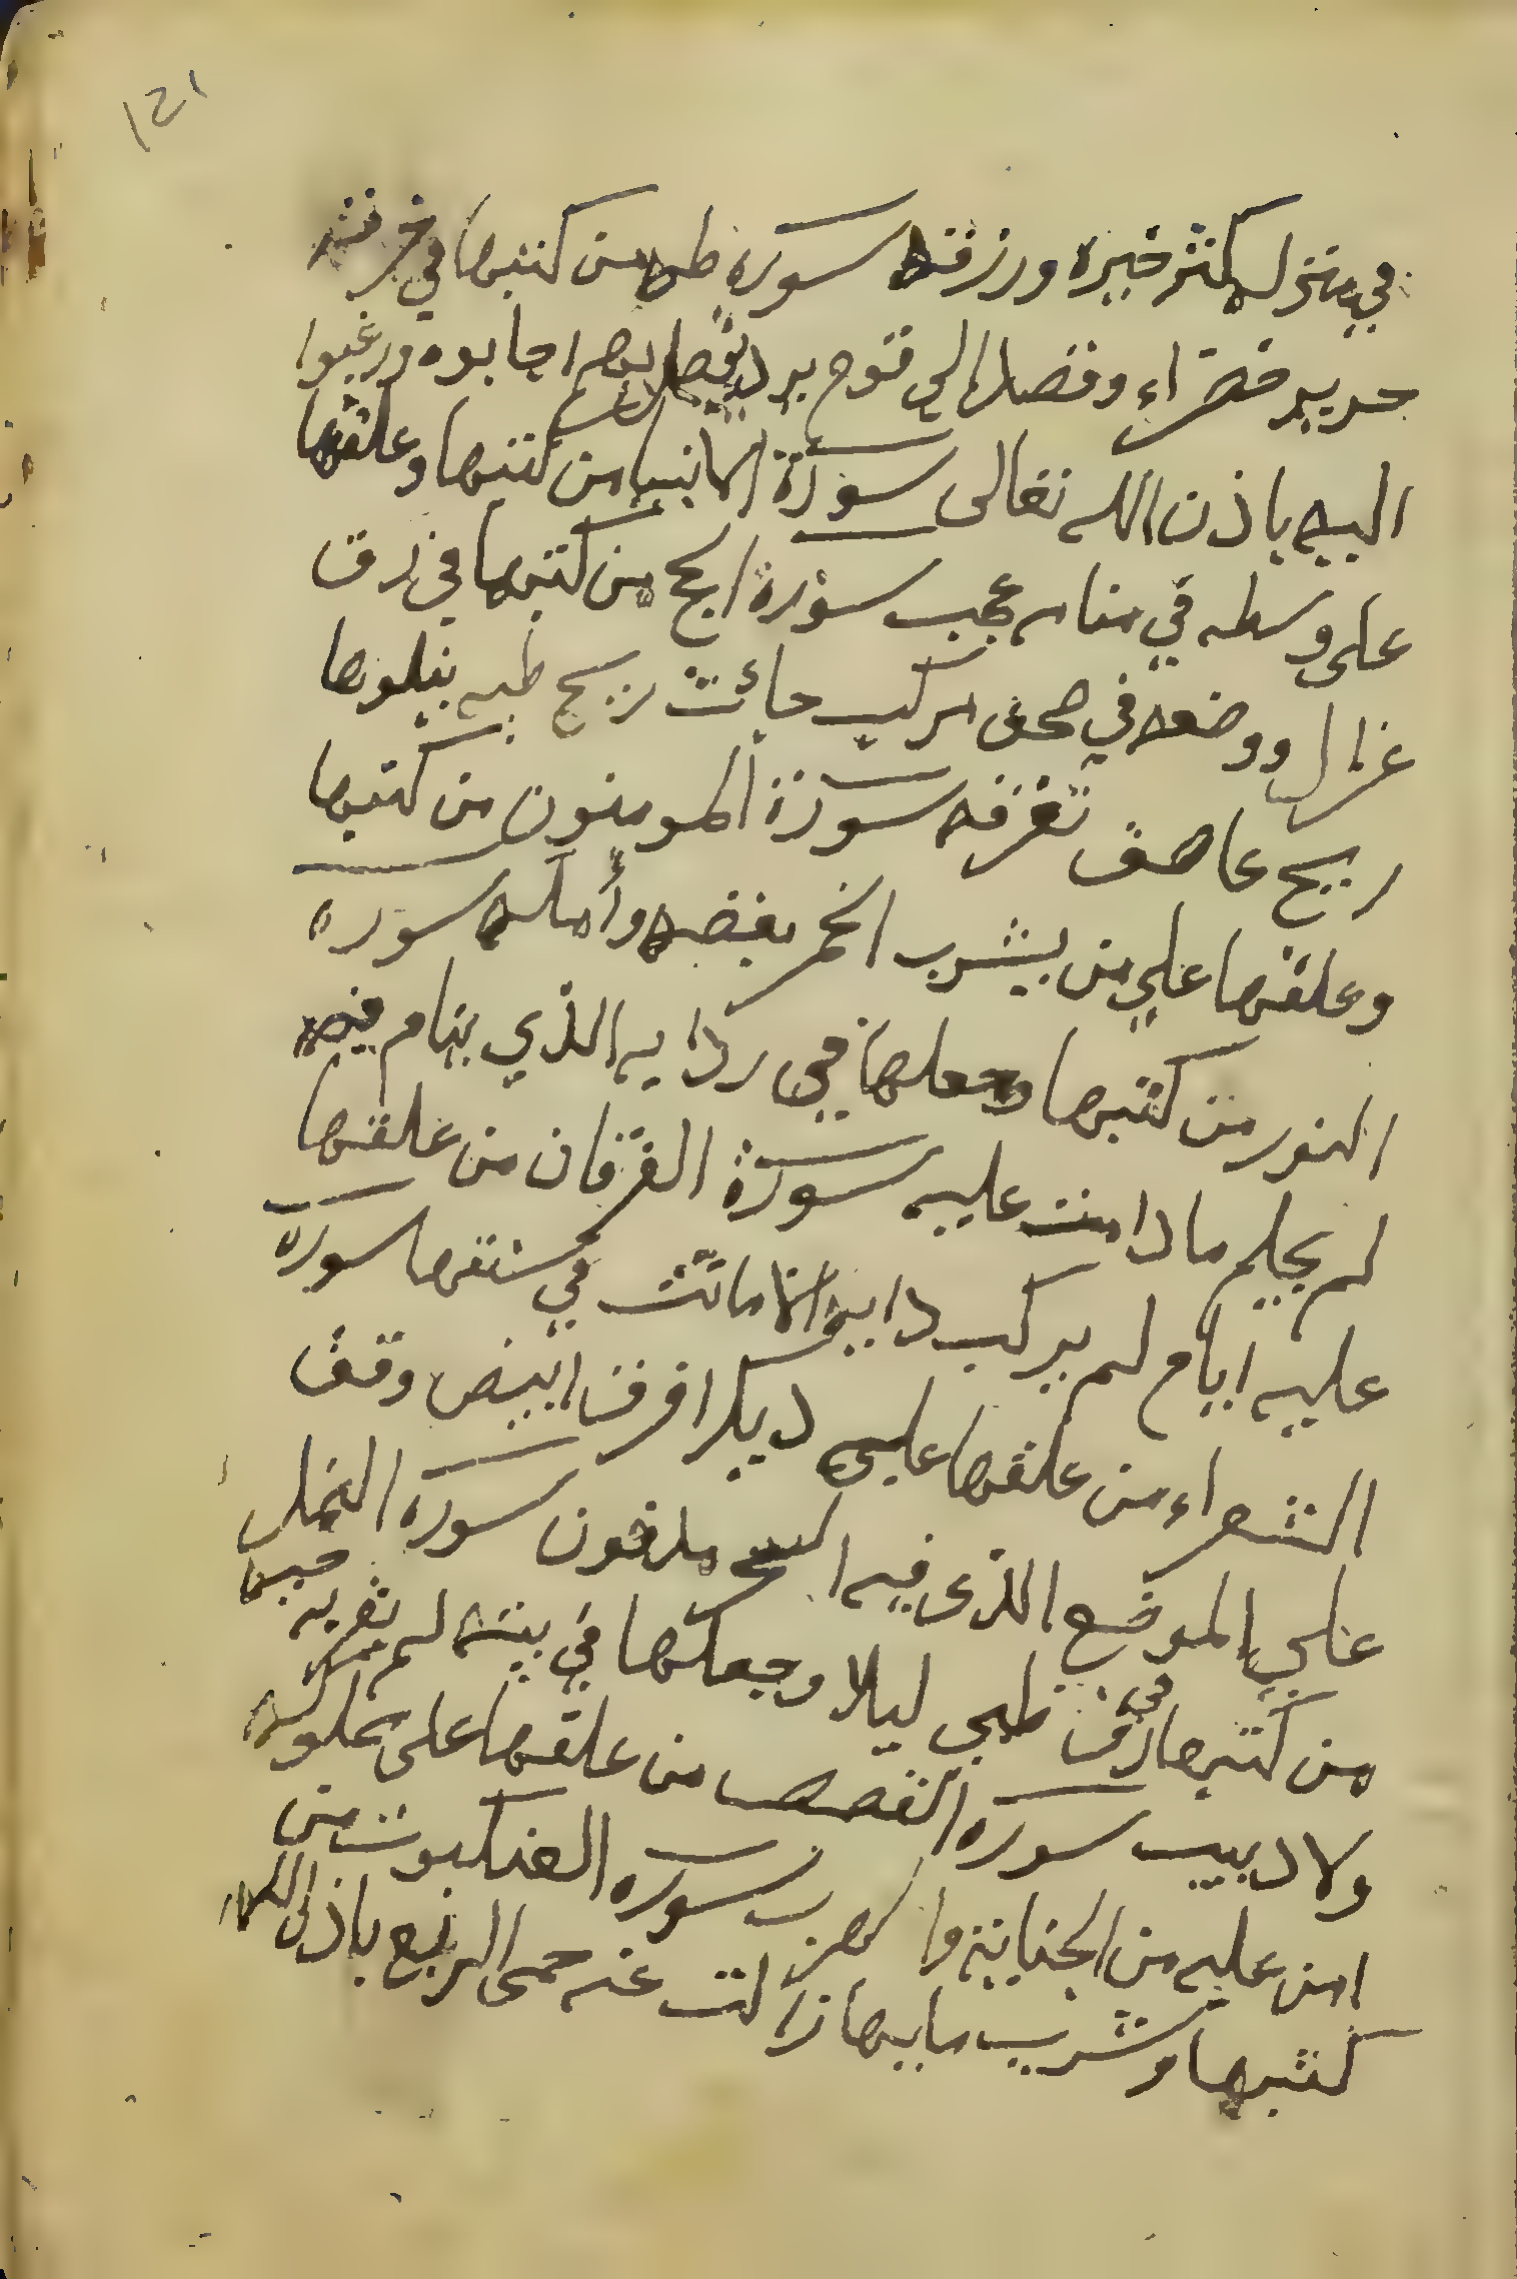 121
في منزله كثر خيره ورزقه سورة طه من كتبها في خرقة
حرير خضراء وقصد الي قوم يريد بهم اجابوه ورغبوا
اليه باذن الله تعالى سورة الانبيا من كتبها وعلقها
على وسطه في منامه عجب سورة الحج من كتبها في رق
غزال ووضعه في صحن مركب جائت ريح طيبه يتلوها
ريح عاصف تغرقه سورة المومنون من كتبها
وعلقها علي من يشرب الخمر يغضه سورة
النور من كتبها وجعلها في ردايه الذي ينام فيه
لم يحلم ما دامت عليه سورة الفرقان من علقها
عليه ايام لم يركب دابه الا ماتت في سنتها سورة
الشعراء من علقها على ديك افرق ابيض وقف
علي الموضع الذى فيه السحر مدفون سورة النمل
من كتبها في رق ظبي ليلا وجعلها في بيته لم يقربه حيه
ولا دبيب سورة القصص من علقها على مملوكه
امن عليه من الجنايه سورة العنكبوت من
كتبها وشرب مايها زالت عنه حمى الربع باذن الله